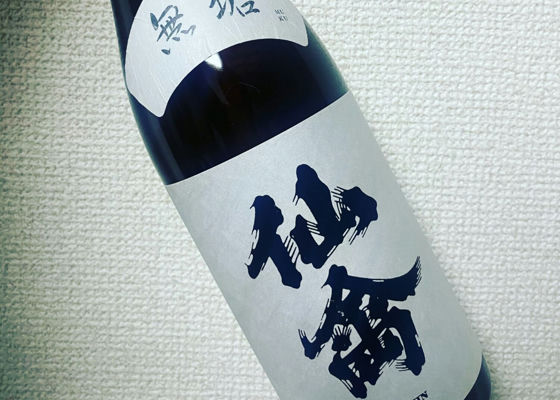 無垢
MU
KU
仙禽